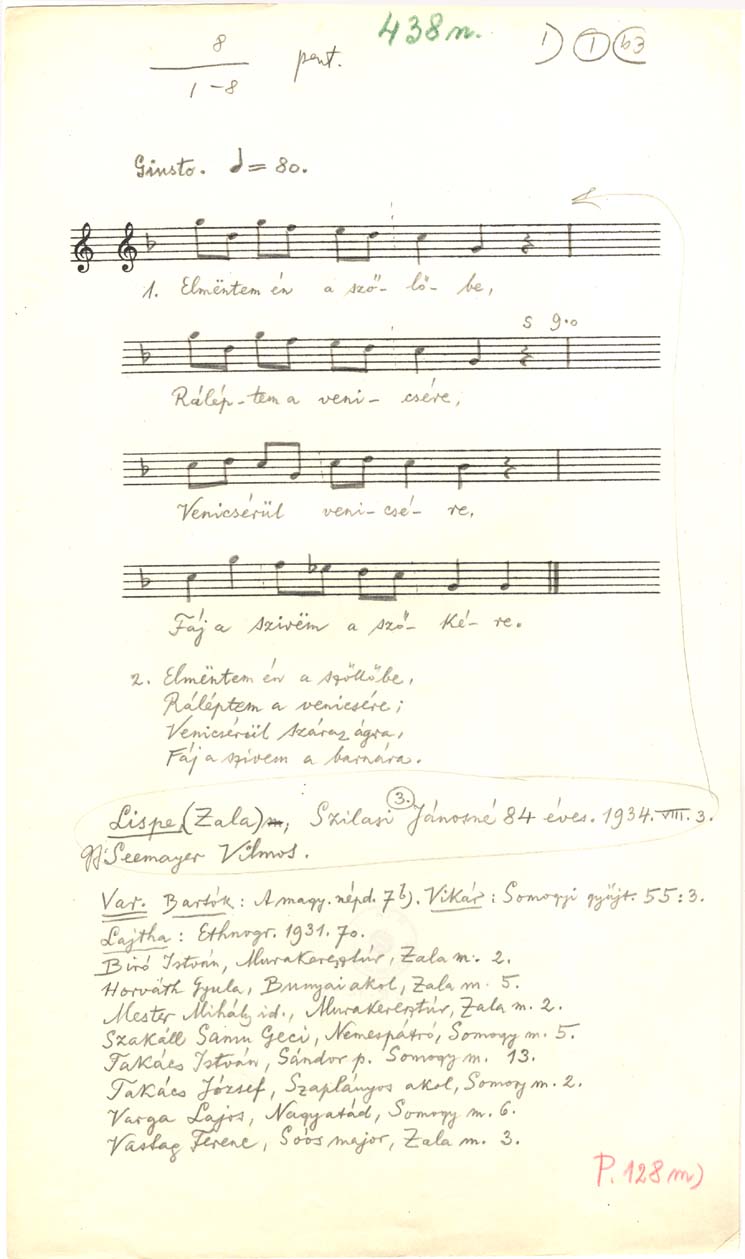 438 n.
8
1-8
pent.
1) 1 b3
Giusto. = 80.
1. Elmëntem én a sző- lő- be,
s 9.0
Rálép-tem a veni- csére,
Venicsérül veni- csé- re,
Fáj a szivëm a sző- ké- re.
2. Elmëntem én a szöllőbe,
Ráléptem a venicsére;
Venicsérül száraz ágra,
Fáj a szivem a barnára.
3.
Lispe (Zala), Szilasi Jánosné 84 éves. 1934. VIII. 3.
gy: Seemayer Vilmos.
Var. Bartók: A magy. népd. 7b). Vikár: Somogyi gyüjt. 55:3.
Lajtha: Ethnogr. 1931. 70.
Biró István, Murakeresztúr, Zala m. 2.
Horváth Gyula, Bunyai akol, Zala m. 5.
Mester Mihály id., Murakeresztúr, Zala m. 2.
Szakáll Samu Geci, Nemespátró, Somogy m. 5.
Takács István, Sándor p. Somogy m. 13.
Takács József, Szaplányos akol, Somogy m. 2.
Varga Lajos, Nagyatád, Somogy m. 6.
Vastag Ferenc, Soós major, Zala m. 3.
P. 128 m)